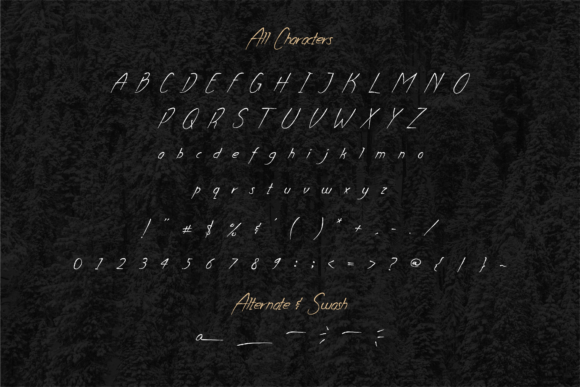 All Characters
A B C D E F G H I J K L M N O
P Q R S T U V W X Y Z
a b c d e f g h i j k l m n o
p q r s t u v w x y z
! " # $ % & ' ( ) * + , - . /
0 1 2 3 4 5 6 7 8 9 : ; < = > ? @ { | } ~
Alternate & Swash
a